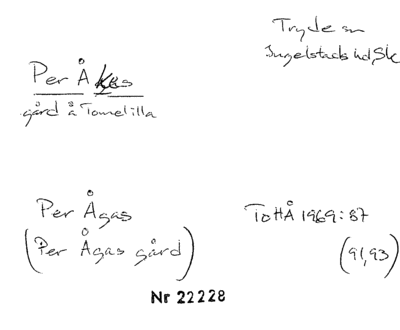 Tryde sn
Ingelstads hd Sk
Per Åkes
gård å Tomelilla
Per Ågas
(Per Ågas gård)
ToHÅ 1969:87
(91,93)
Nr 22228